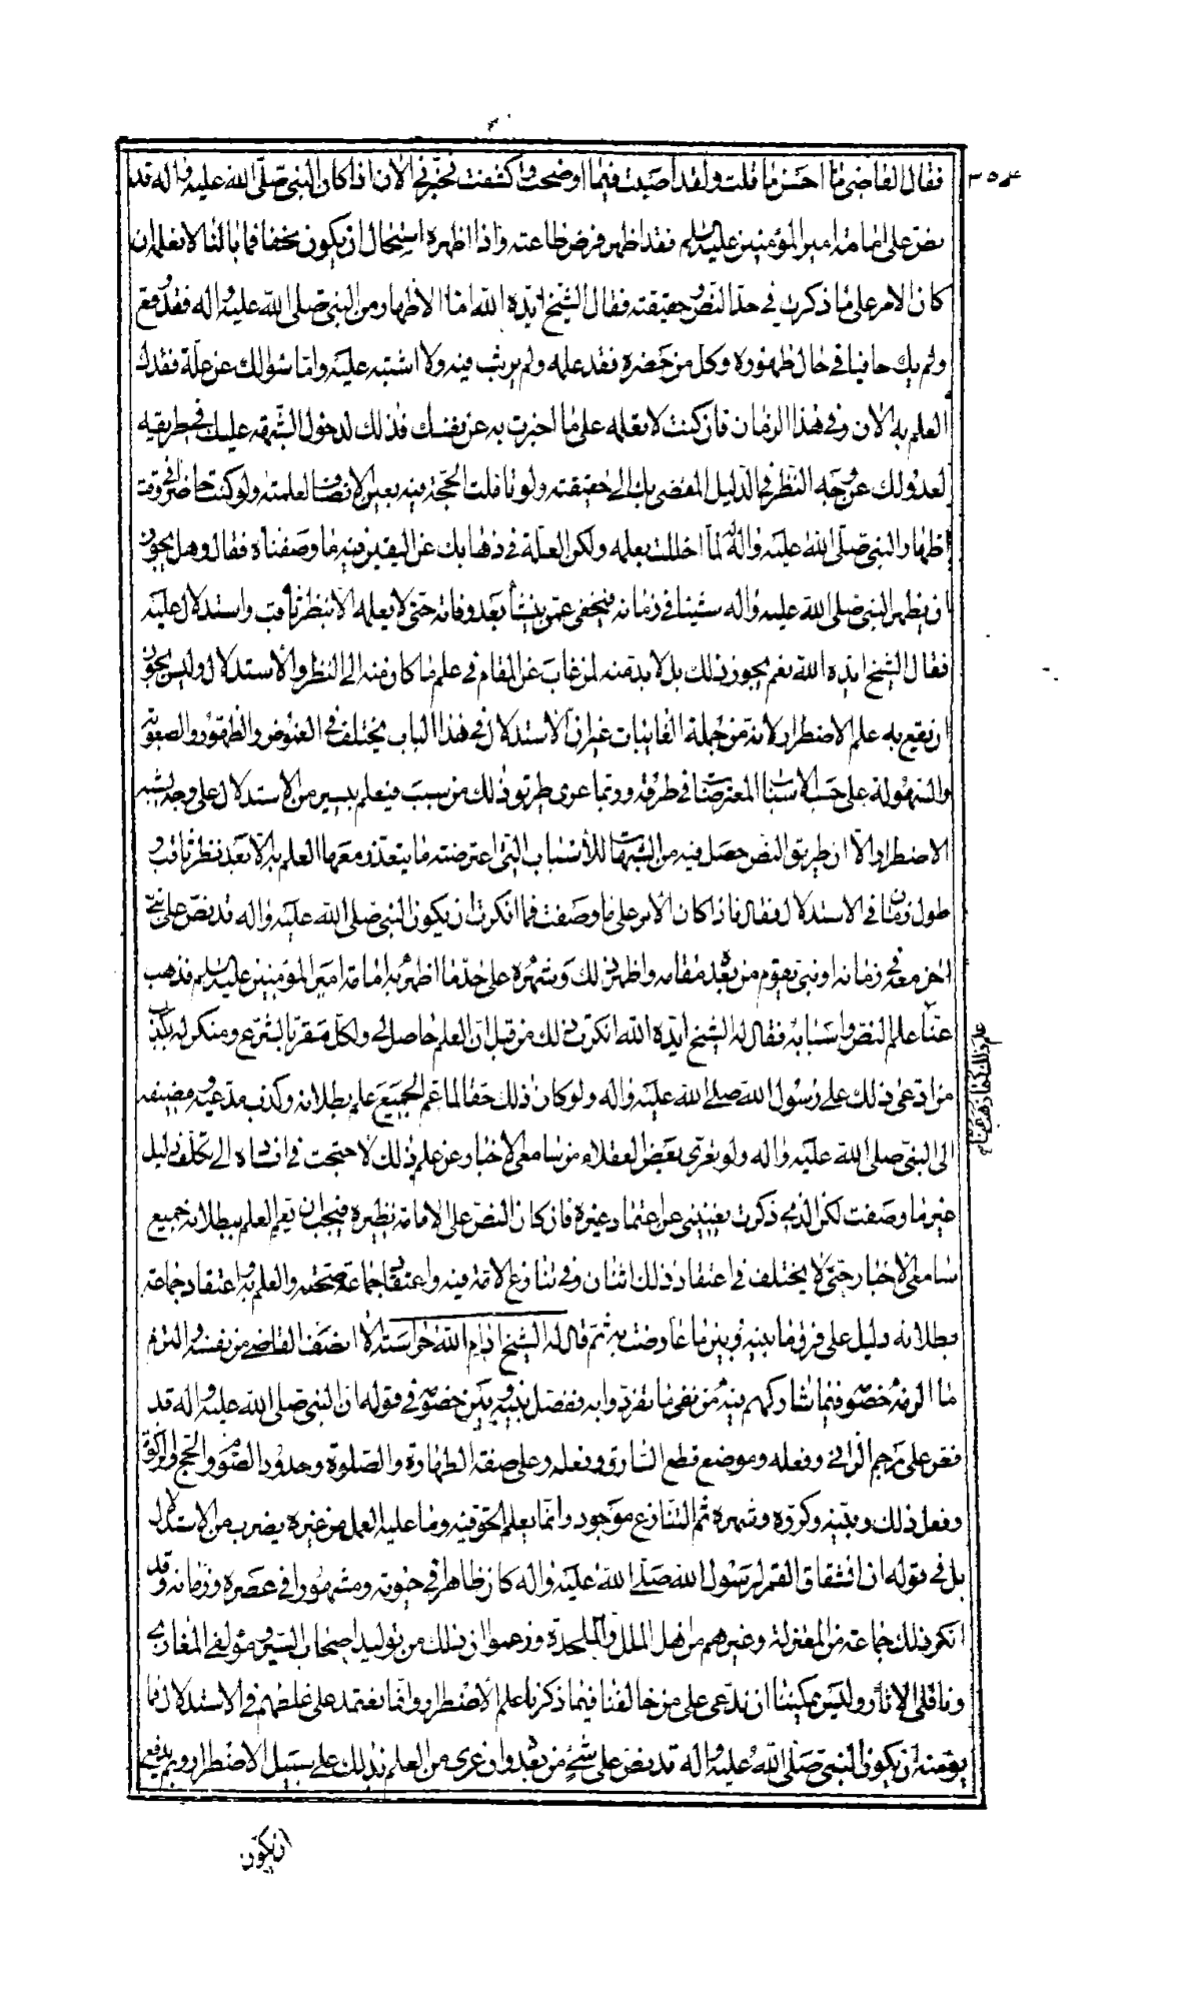 ٣٥٤
فقال القاضي ما احسن ما قلت ولقد اصبت فيما اوضحت وكشفت فخبرني الان اذا كان النبي صلى الله عليه واله قد
نص على امامة امير المؤمنين عليه السلام فقد اظهر فرض طاعته واذا اظهره استحال ان يكون مخفيا فما بالنا لا نعلمه ان
كان الامر على ما ذكرت في حد النص وحقيقته فقال الشيخ ايده الله اما الاظهار من النبي صلى الله عليه واله فقد وقع
ولم يك خافيا في حال ظهوره وكل من حضره فقد علمه ولم يرتب فيه ولا اشتبه عليه واما سؤالك عن علة فقدك
العلم به الان وفي هذا الزمان فان كنت لا تعلمه على ما اخبرت به عن نفسك فذلك لدخول الشبهة عليك في طريقه
لعدولك عن وجه النظر في الدليل المفضي بك الى حقيقته ولو تاملت الحجة فيه بعين الانصاف لعلمته ولو كنت حاضرا في وقت
اظهار النبي صلى الله عليه واله له لما اخللت بعلمه ولكن العلة في ذهابك عن اليقين فيه ما وصفناه فقال وهل يجوز
ان يظهر النبي صلى الله عليه واله شيئا في زمانه فيخفى عمن ينشأ بعد وفاته حتى لا يعلمه الا بنظر ثاقب واستدلال عليه
فقال الشيخ ايده الله نعم يجوز ذلك بل لا بد منه لمن غاب عن المقام في علم ما كان منه الى النظر والاستدلال وليس يجوز
ان يقع به علم الاضطرار لانه من جملة الغائبات غير ان الاستدلال في هذا الباب يختلف في الغموض والظهور والصعوبة
والسهولة على حسب الاسباب المعترضات في طرقه وربما عرى طريق ذلك من سبب فيعلم بيسير من الاستدلال على وجه يشبه
الاضطرار الا ان طريق النص حصل فيه من الشبهات للأسباب التي اعترضته ما يتعذر معها العلم به الا بعد نظر ثاقب و
طول زمان في الاستدلال فقال فاذا كان الأمر على ما وصفت فما انكرت ان يكون النبي صلى الله عليه واله قد نص على نبي
اخر معه في زمانه او نبي يقوم من بعده مقامه واظهر ذلك وشهره على حد ما اظهر به امامة امير المؤمنين عليه السلام فذهب
عنا علم النص واسبابه فقال له الشيخ ايده الله انكرت ذلك من قبل ان العلم حاصل لي ولكل مقر بالشرع ومنكر له بكذب
علم ذلك كما ذهب عنا علم
من ادعى ذلك على رسول الله صلى الله عليه واله ولو كان ذلك حقا لما عم الجميع علم بطلانه وكذب مدعيه ومضيفه
الى النبي صلى الله عليه واله ولو تعرى بعض العقلاء من سامعي الاخبار عن علم ذلك لاحتجت في افساده الى تكلف دليل
غير ما وصفت لكن الذي ذكرت يغنيني عن اعتماد غيره فان كان النص على الامامة نظيره فيجب ان يعم العلم ببطلانه جميع
سامعي الاخبار حتى لا يختلف في اعتقاد ذلك اثنان وفي تنازع الامة فيه واعتقاد جماعة صحته والعلم به اعتقاد جماعة
بطلانه دليل على فرق ما بينه وبين ما عارضت به ثم قال له الشيخ ادام الله حراسته الا انصف القاضي من نفسه والتزم
ما الزمه خصومه فيما شاركهم فيه من نفي ما تفردوا به ففصل بينه وبين خصومه في قوله ان النبي صلى الله عليه واله قد
نص على رجم الزاني وفعله وموضع قطع السارق وفعله وعلى صفة الطهارة والصلوة وحدود الصوم والحج والزكوة
وفعل ذلك وبينه وكرره وشهره ثم التنازع موجود وانما يعلم الحق فيه وما عليه العمل من غيره بضرب من الاستدلال
بل في قوله ان انشقاق القمر لرسول الله صلى الله عليه واله كان ظاهرا في حيوته ومشهورا في عصره وزمانه وقد
انكر ذلك جماعة من المعتزلة وغيرهم من اهل الملل والملحدة وزعموا ان ذلك من توليد اصحاب السير ومؤلفي المغازي
وناقلي الاثار وليس يمكننا ان ندعي على من خالفنا فيما ذكرنا علم الاضطرار وانما نعتمد على غلطهم في الاستدلال فما
يؤمنه ان يكون النبي صلى الله عليه واله قد نص على شيء من بعده وان عرى من العلم بذلك على سبيل الاضطرار وبم يدفع
ان يكون